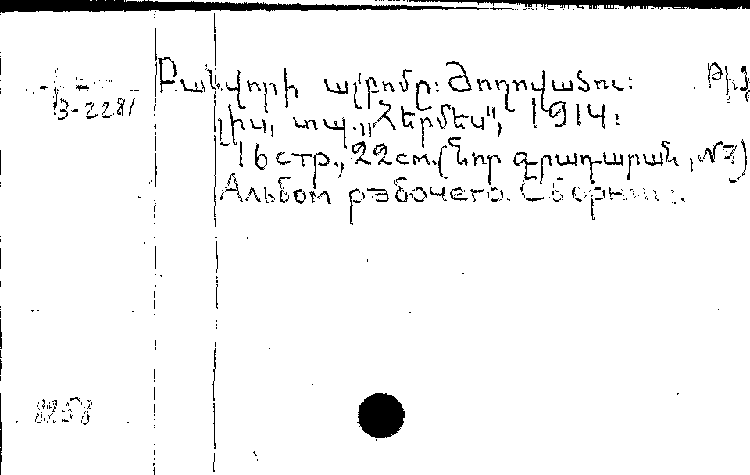 Բանվորի ալբոմը։ Ժողովածու։ Թիֆ
В-2281
լիս, տպ. „Հերմես", 1914։
16 стр., 22 см. (Նոր գրադարան, №7)
Альбом рабочего. Сборник.
8258